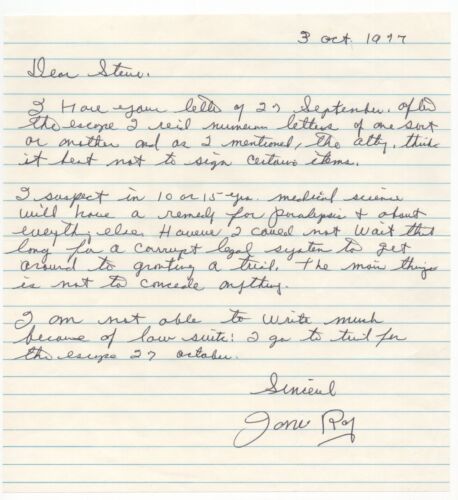 3 oct. 1977
Dear Steve.
I Have your letter of 27 September. after
the escape I recd numerous letters of one sort
or another and as I mentioned, the atty. think
it best not to sign certain items.
I suspect in 10 or 15 yrs. medical science
will have a remedy for paralysis & about
everything else. However I could not wait that
long for a corrupt legal system to get
around to granting a trial. The main thing
is not to concede anything.
I am not able to write much
because of law suits: I go to trial for
the escape 27 october.
Sincerel
James Ray